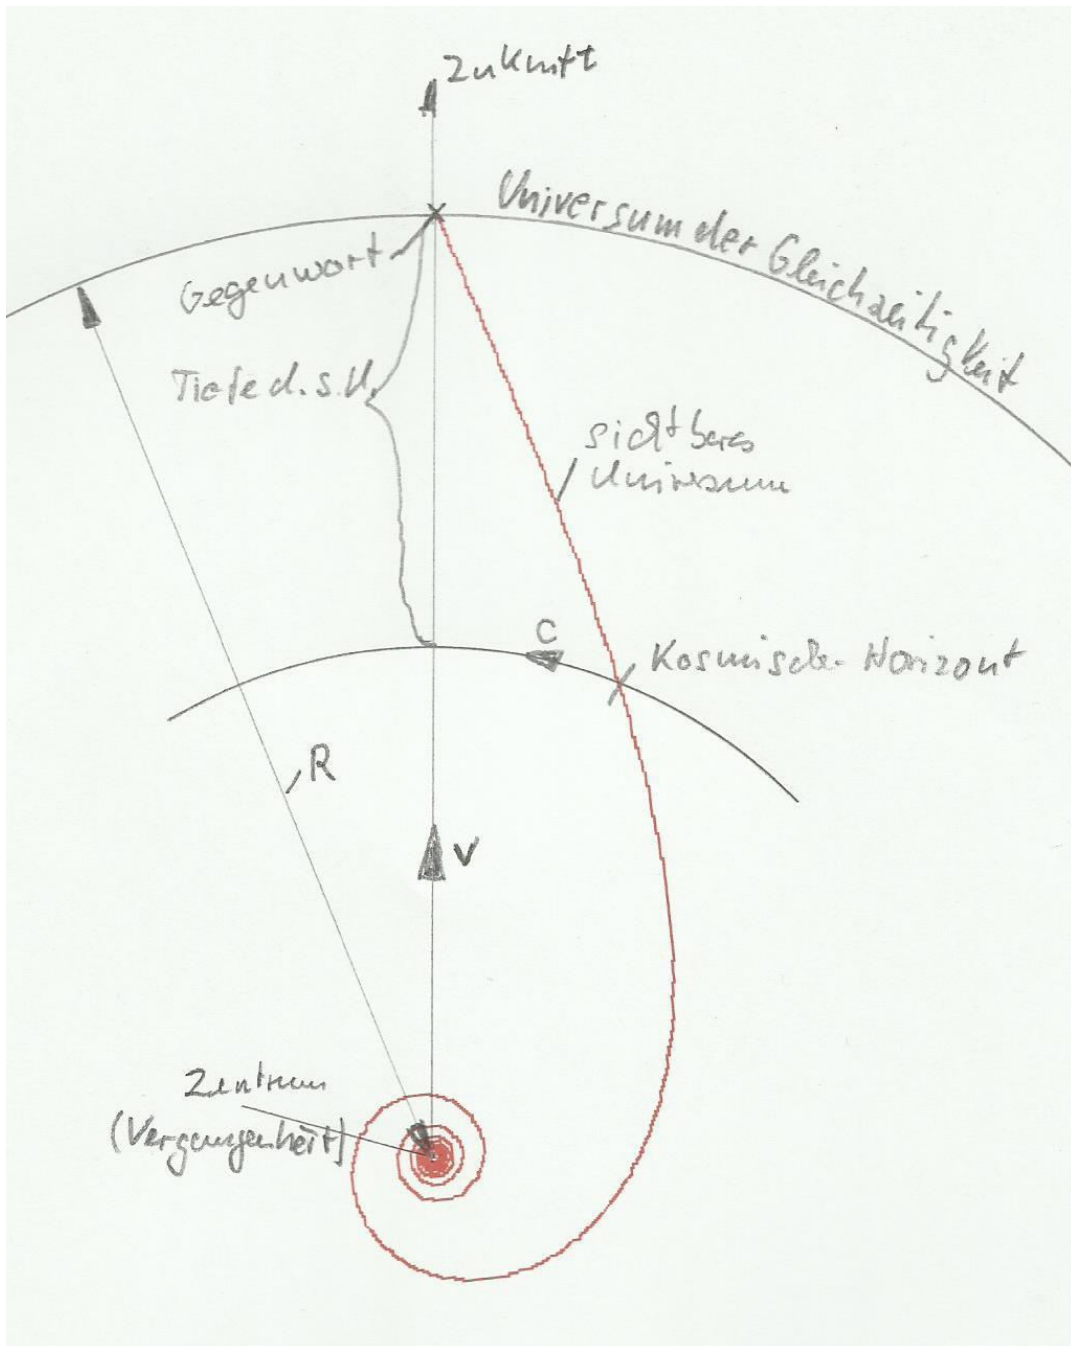 Zukunft
Universum der Gleichzeitigkeit
Gegenwart
Tiefe d. s. U.
sichtbares
Universum
C
Kosmischer Horizont
R
V
Zentrum
(Vergangenheit)